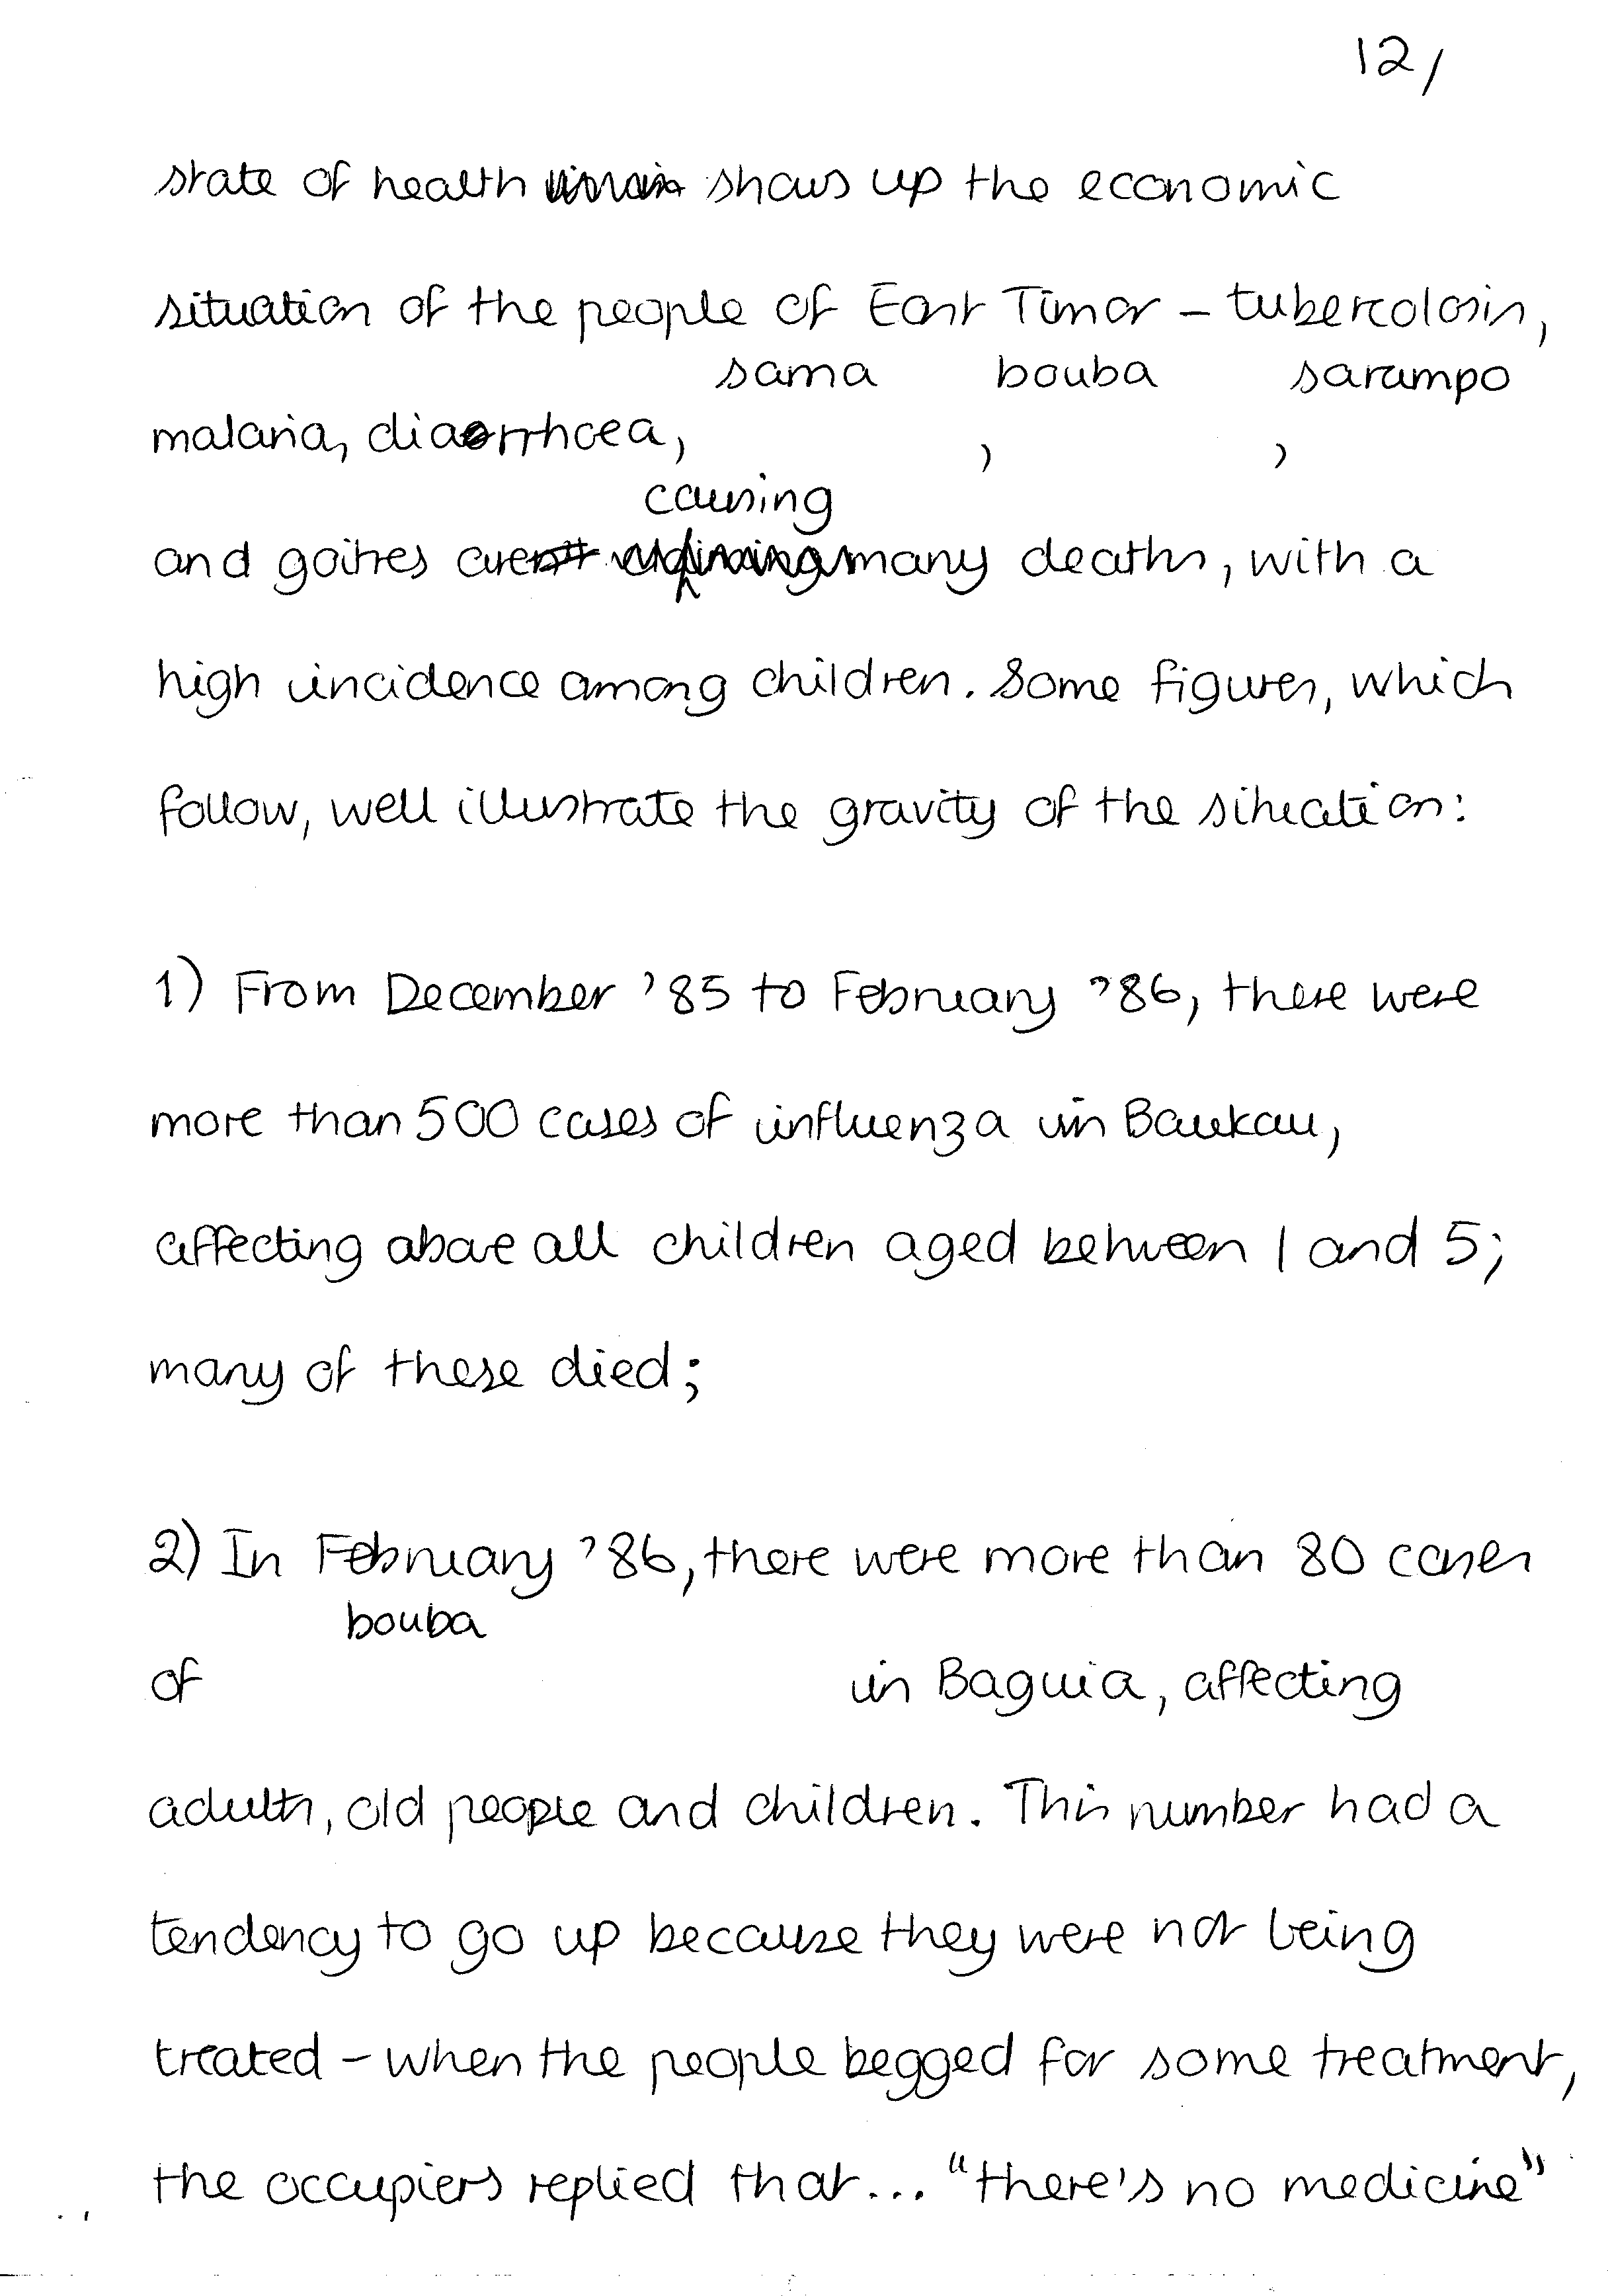 12/
state of health shows up the economic
situation of the people of East Timor – tubercolosis,
sama bouba sarampo
malaria, diaorrhoea, , ,
causing
and goitres are many deaths, with a
high incidence among children. Some figures, which
follow, well illustrate the gravity of the situation:
1) From December '85 to February '86, there were
more than 500 cases of influenza in Baukau,
affecting above all children aged between 1 and 5;
many of these died;
2) In February '86, there were more than 80 cases
bouba
of in Baguia, affecting
adults, old people and children. This number had a
tendency to go up because they were not being
treated – when the people begged for some treatment,
the occupiers replied that... "there's no medicine"